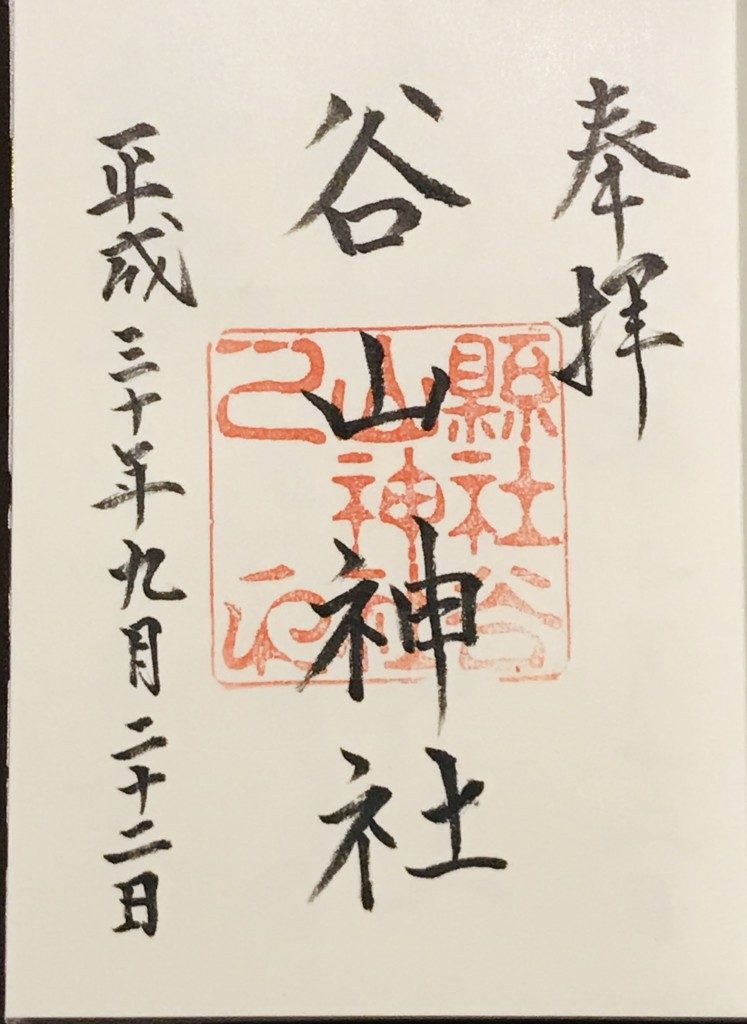 奉拝
谷山神社
平成三十年九月二十二日
縣社谷
山神社
之印